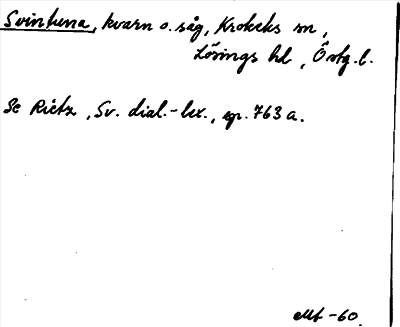 Svintuna, kvarn o. såg, Krokeks sn,
Lösings hd, Östg. l.
Se Rietz, Sv. dial.-lex., sp. 763 a.
Mt -60.